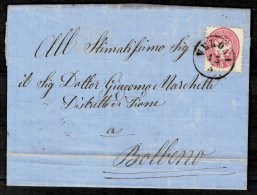 All Stimatissimo Sig
il Sig Dottor Giacomo Marchetti
Distretto di Tione
a
Bolbeno
VERONA